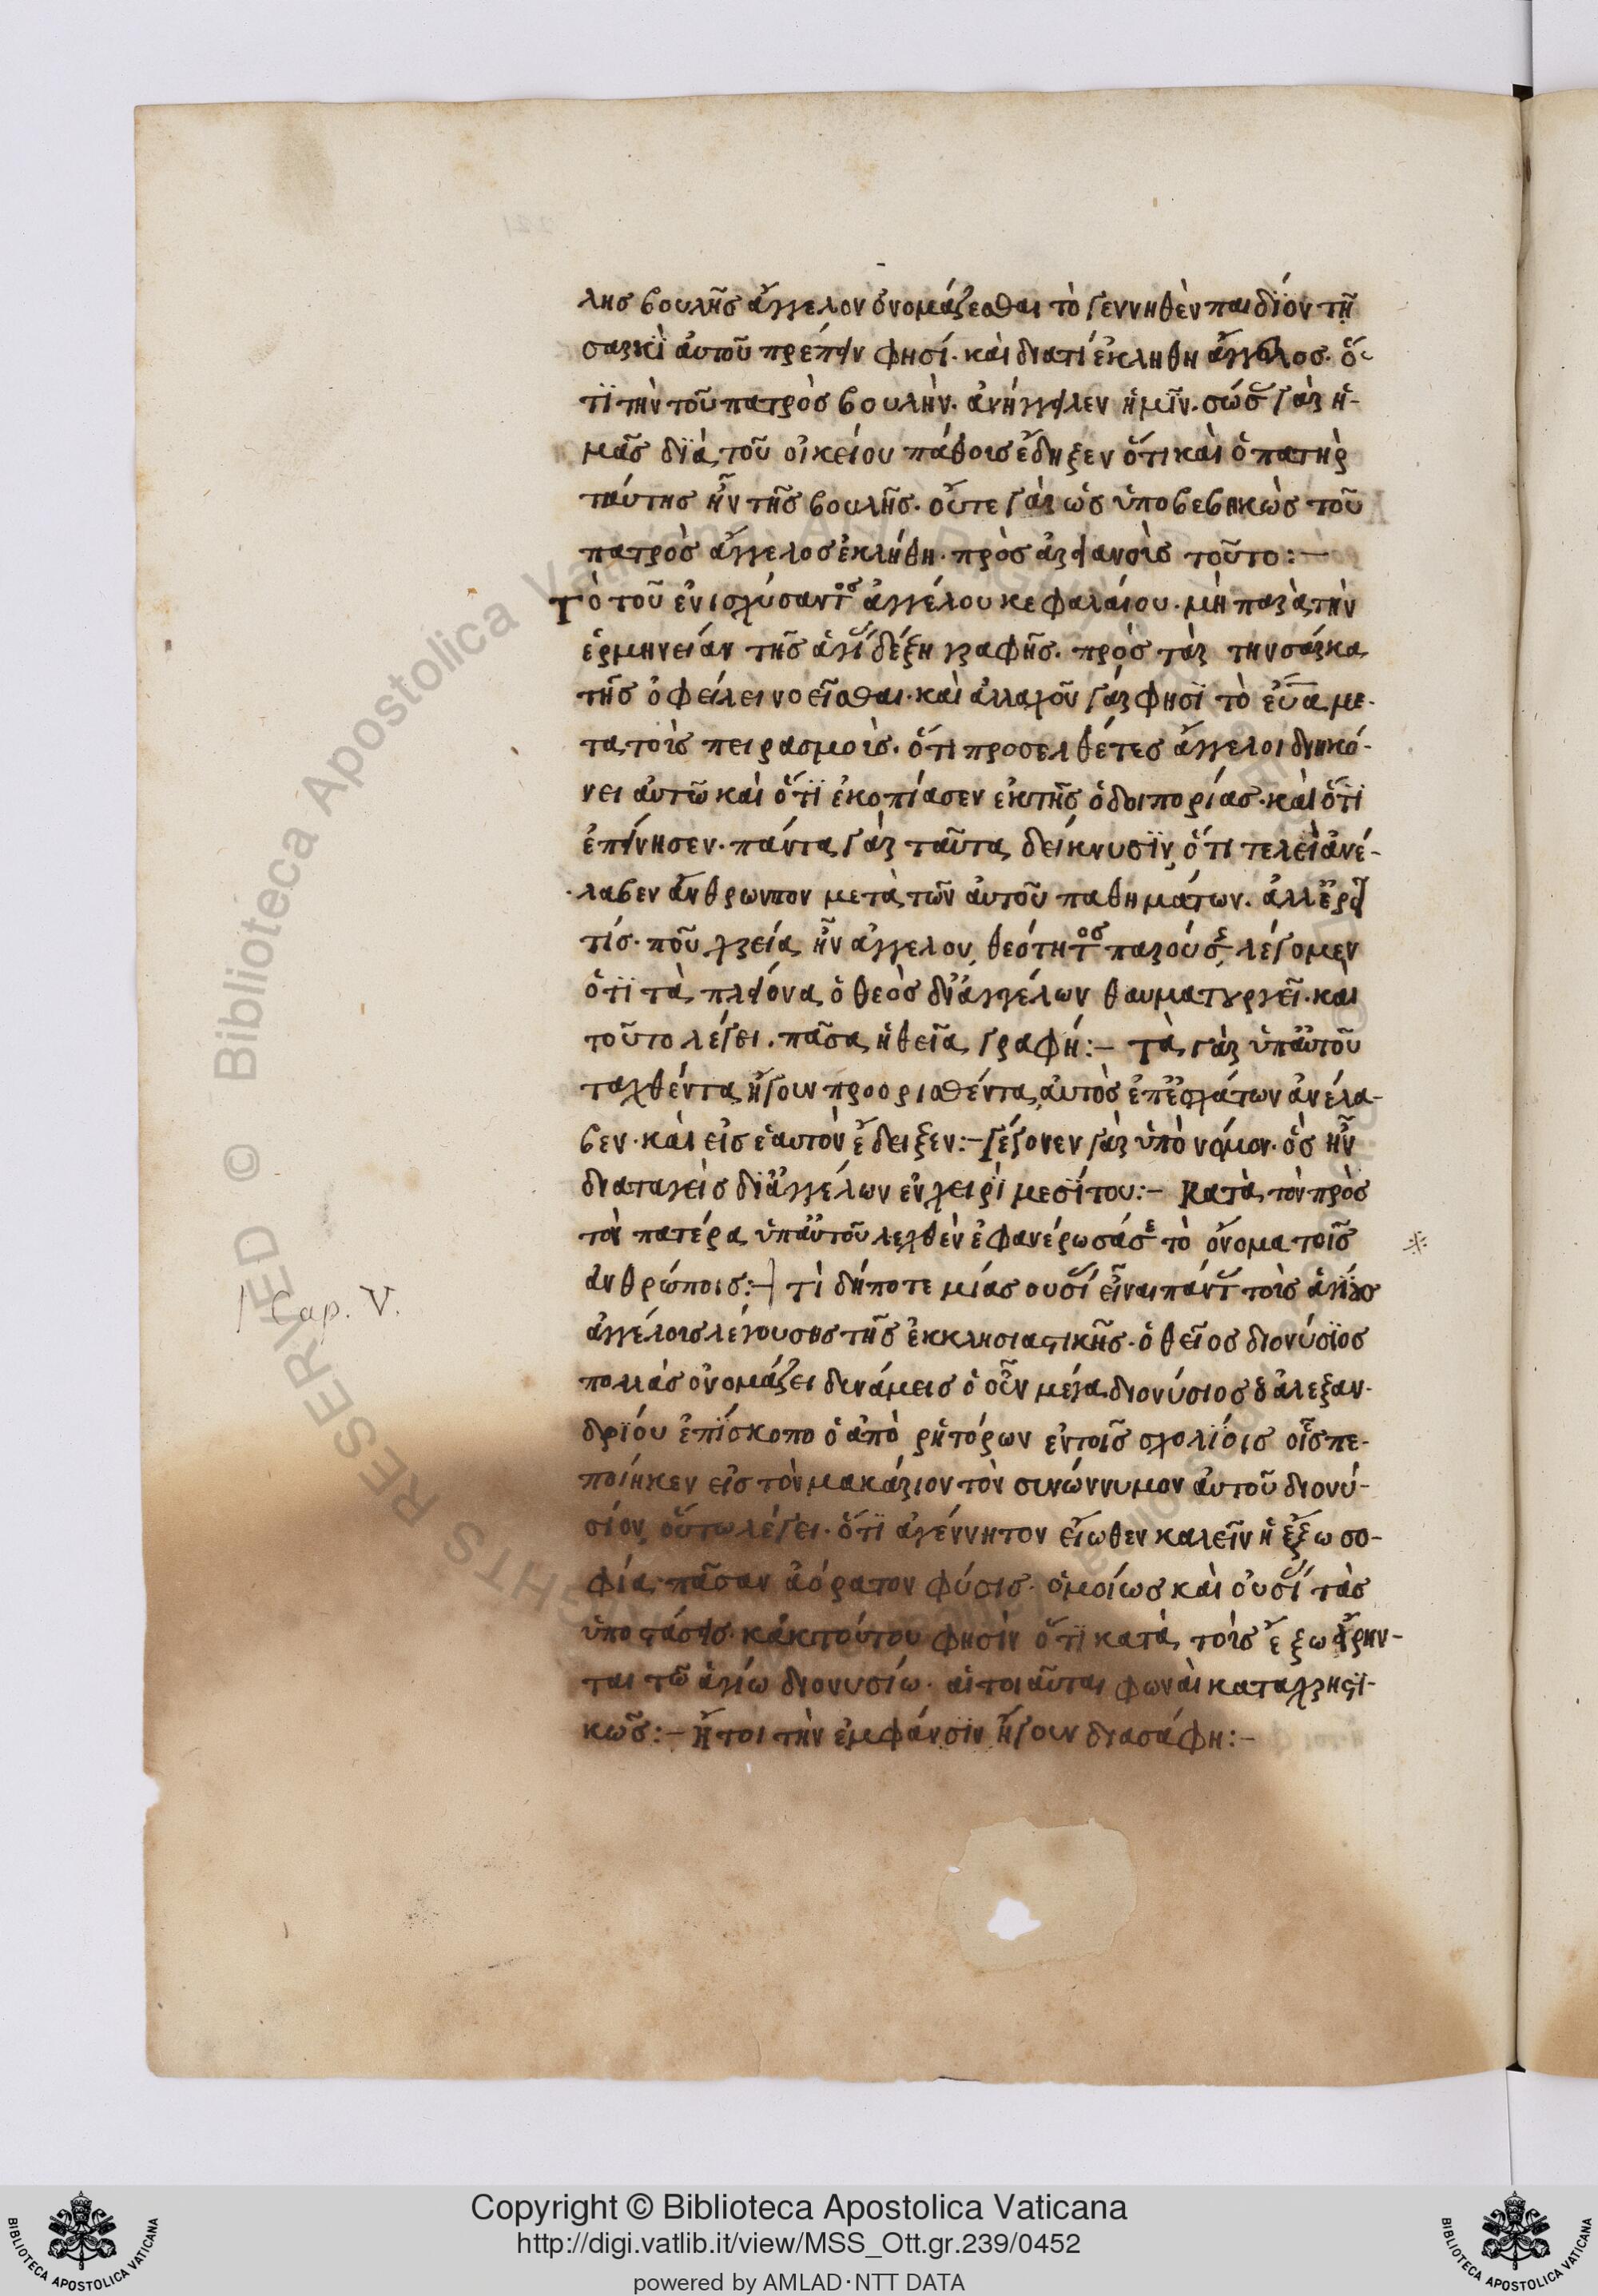 λησ βουλῆσ ἄγγελον ὀνομάζεσθαι τὸ γεννηθὲν παιδΐον τῇ
σαρκῒ ἀυτοῦ πρέπειν φησί· καὶ διατί ἐκλήθη ἄγγελοσ· ὅ-
τϊ τὴν τοῦ πατρὸσ βουλὴν· ἀνήγγειλεν ἡμῖν· γὰρ ἡ-
μᾶσ διὰ τοῦ οἰκείου πάθουσ ἔδηξεν ὅτι καὶ ὁ πατὴρ
ταύτησ ἦν τῆσ βουλῆσ· οὔτε γὰρ ὡσ ὑποβεβηκὼσ τοῦ
πατρὸσ ἄγγελοσ ἐκλήθη· πρὸσ τοῦτο:—
Τὸ τοῦ ἐνισχύσαντοσ ἀγγέλου κεφαλάιου· μὴ παρὰ τὴν
ἑρμηνείαν τῆσ δέξη γραφῆσ· πρὸσ τὰρ τὴν σάρκα
τῆσ ὀφείλει νοεῖσθαι· καὶ ἀλλαχοῦ γάρ φησϊ τὸ με-
τὰ τοὺσ πειρασμοὺσ· ὅτι προσελθέτεσ ἄγγελοι διηκό-
νει ἀυτῶ καὶ ὅτϊ ἐκοπίασεν ἐκ τῆσ ὁδοιπορίασ· καὶ ὅτϊ
ἐπείνησεν· πάντα γὰρ ταῦτα δείκνυσϊν ὅτι ἀνέ-
λαβεν ἄνθρωπον μετὰ τῶν ἀυτοῦ παθημάτων·
τίσ· ποῦ χρεία ἦν ἀγγελου θεότητοσ λέγομεν
ὅτϊ τὰ πλείονα ὁ θεὸσ δι ἀγγέλων θαυματουργεῖ· καὶ
τοῦτο λέγει· πᾶσα ἡ θεῖα γραφή:— τὰ γὰρ ὑπ ἀυτοῦ
ταχθέντα ἤγουν προορισθέντα ἀυτὸσ ἐπ ἐσχάτων ἀνέλα-
βεν· καὶ εἰσ ἑαυτὸν ἔδειξεν:— γέγονεν γὰρ ὑπὸ νόμον· ὃσ ἦν
διαταγεὶσ δι ἀγγέλων ἐν χειρὶ μεσϊτου:— Κατὰ τὸν πρὸσ
τὸν πατέρα ὑπ ἀυτοῦ λεχθὲν ἐφανέρωσά σε τὸ ὄνομα τοῖσ
ἀνθρώποισ:— τὶ δήποτε μίασ ουσί εἶναι πάντ τοὺσ ἁγίουσ
ἀγγέλουσ λέγουσησ τῆσ ἐκκλησιαστικῆσ· ὁ θεῖοσ διονύσϊοσ
πολλὰσ ὀνομάζει δυνάμεισ ὁ οὖν μέγα διονύσιοσ ὁ ἀλεξαν-
δρϊόυ ἐπίσκοπο ὁ ἀπὸ ρητόρων ἐν τοῖσ σχολίοισ οἷσ πε-
ποίηκεν εἰσ τὸν μακάριον τὸν συνώνυμον ἀυτοῦ διονύ-
σίον, οὕτω λέγει· ὅτϊ ἀγέννητον εἴωθεν καλεῖν ἡ ἔξω σο-
φία πᾶσαν ἀόρατον φύσισ· ὁμοίωσ καὶ ὀυσί τὰσ
ὑποστάσεισ· κἀκ τούτου φησὶν ὅτϊ κατὰ τοὺσ ἔξω εἴρην-
ται τῶ ἁγίω διονυσίω· αἱ τοιαῦται φωναὶ καταχρηστϊ-
κῶσ:— ἤτοι τὴν ἐμφάνσϊν ἤγουν διασάφη:—
Cap. V.
Copyright © Biblioteca Apostolica Vaticana
http://digi.vatlib.it/view/MSS_Ott.gr.239/0452
powered by AMLAD·NTT DATA
BIBLIOTECA APOSTOLICA VATICANA
BIBLIOTECA APOSTOLICA VATICANA